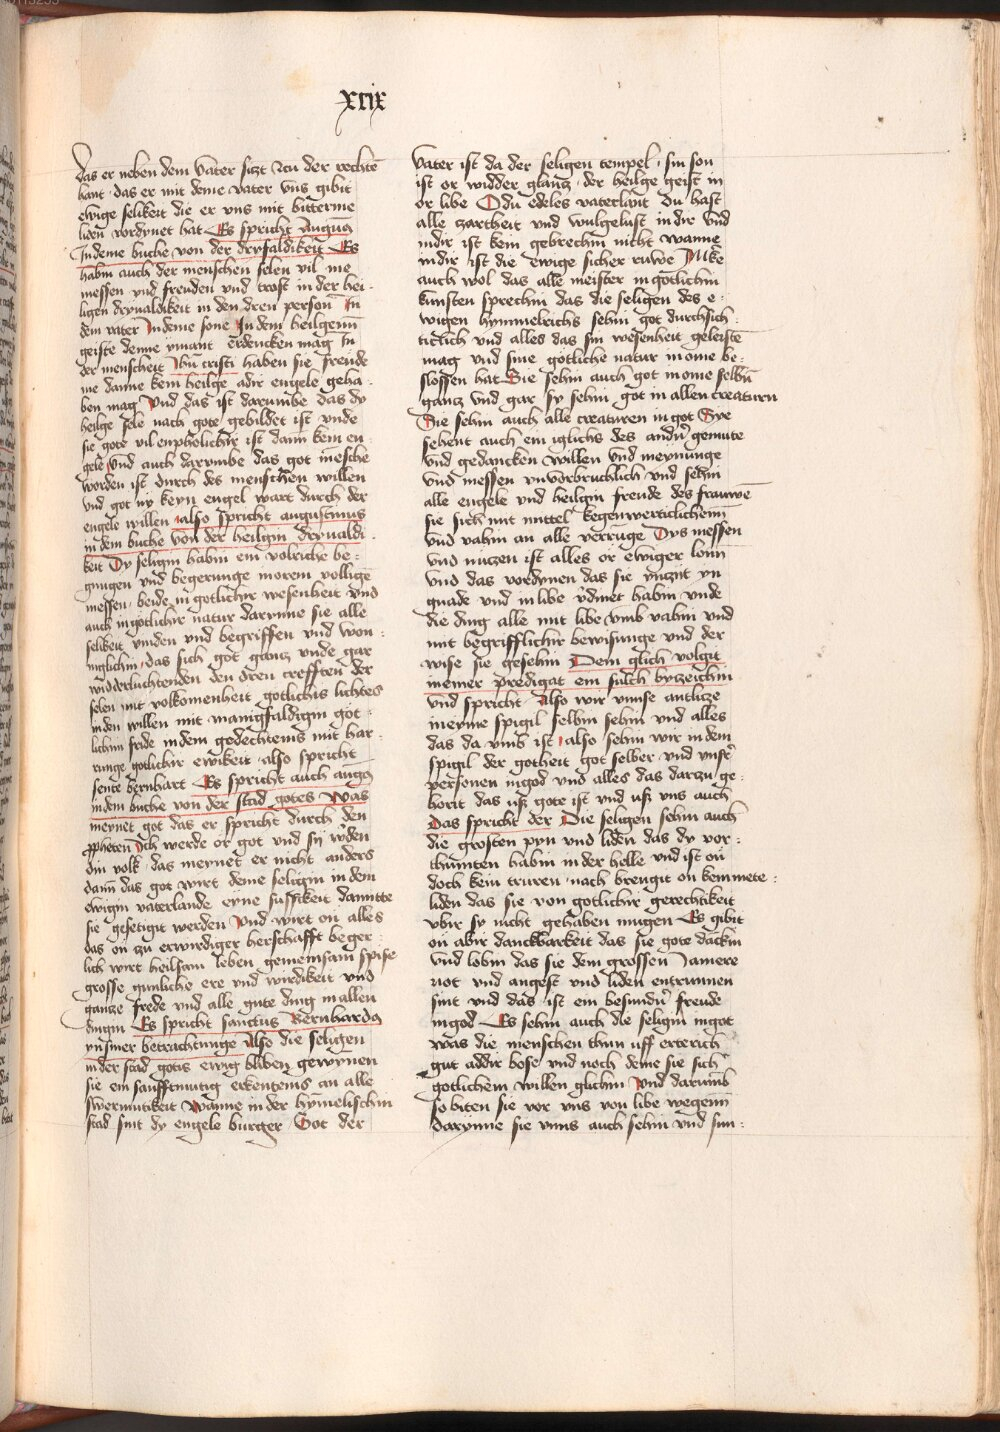 xxix
das er neben dem vater sitzt Zcu der rechte
hant · das er mit deme vater vns gibit
ewige selikeit die er vns mit bitterme
liden vordynet hat Es spricht Augus
Indeme buche von der dryfaldikeit Es
habin auch der menschen selen vil me
messen vnd freuden vnd trost in der hei-
ligen dryualdikeit in den dren person In
dem vater Indeme sone In dem heilgenn
geiste denne ymant erdencken mag In
der menscheit Jhu cristi haben sie freude
me danne kein heilge adir engele geha-
ben mag Vnd das ist darumbe das dy
heilge sele nach gote gebildet ist vnde
sie gote vil enpholichir ist dann kein en-
gele Vnd auch darumbe das got mesche
worden ist durch des menschen willen
vnd got ny keyn engel wart durch der
engele willen Also spricht augustinus
in dem buche von der heiligin dryualdi-
keit Dy seligin habin ein volriche be-
gnugen vnd begerunge in orem vollige
messen · beide in gotlichir wesenheit vnd
auch in gotlichir natur darynne sie alle
selikeit vinden vnd begriffen vnd won-
niglichin · das sich got gancz vnde gar
widderluchtenden den dren crefften der
selen mit volkomenheit gotlichis lichtes
in den willen mit manigfaldigin got-
lichem fride in dem gedechtenis mit har-
runge gotlichir ewikeit · also spricht
sente bernhart Es spricht auch augus
in dem buche von der stad gotes Was
meynet got das er spricht durch den
ppheten Ich werde or got vnd sy werden
min volk · das meynet er nicht anders
dann das got wirt deme seligin in dem
ewigin vaterlande eyne sussikeit damitte
sie gesetigit werden Vnd wirt on alles
das on zu erwirdiger herschafft beger-
lich wirt heilsam leben gemeinsam spise
grosse gunliche ere vnd wirdikeit vnd
gancze frede vnd alle gute ding in allen
dingin Es spricht sanctus Bernhardus
yn siner betrachtunge Also die seligen
in der stad gotis ewig bliben gewynnen
sie ein saufftmutig erkentenis an alle
swermutikeit Wanne in der hymelischin
stad sint dy engele burger Got der
vater ist da der seligen tempel · sin son
ist or widder glancz · der heilge geist in
or libe O du edeles vaterlant du hast
alle zartheit vnd wulgelust in dir vnd
in dir ist kein gebrechin nicht wanne
in dir ist die ewige sicher ruwe Mke
auch wol das alle meister in gotlichin
kunsten sprechin das die seligen des e-
wigen hymmelrichs sehin got durchsich-
ticlich vnd alles das sin wesenheit geleiste
mag vnd sine gotliche natur in ome be-
slossen hat Sie sehin auch got in ome selbn
gancz vnd gar sy sehin got in allen creaturn
Sie sehin auch alle creaturen in got Sye
sehent auch ein iglichs des andn gemute
vnd gedancken willen vnd meynunge
vnd messen vnvorbruchlich vnd sehin
alle engele vnd heilgin freude des frauwe
sie sich mit mittel kegenwerticlichein
vnd vahin an alle verruge Dys messen
vnd nuczen ist alles or ewiger lonn
vnd das vordynen das sie ynzyt yn
gnade vnd in libe vdinet habin vnde
die ding alle mit libe vmb vahin vnd
mit begrifflichir bewisunge vnd der
wise sie gesehin Dem glich volgit
in einer predigat ein sulch byzeichin
vnd spricht Also wir vnnse antlicze
in eyme spigil selbin sehin vnd alles
das da vmb ist · also sehin wir in dem
spigil der gotheit got selber vnd vnser
personen in god vnd alles das darzu ge-
horit das uß gote ist vnd uß vns auch
Das spricht der Die seligen sehin auch
die grosten pyn vnd liden das dy vor-
thumten habin in der helle vnd ist on
doch kein truren · nach brengit on kein mete-
liden das sie von gotlichir gerechtikeit
vbir sy nicht gehaben mugen Es gibit
on abir danckbarkeit das sie gote dackin
vnd lobin das sie dem grossen Jamere
not vnd angest vnd liden entrunnen
sint vnd das ist ein besundn freude
in god Es sehin auch die seligin in got
was die menschen thun uff erterich
gut addir bose vnd noch deme sie sich
gotlichem willen glichin Vnd darumb
so biten sie vor vns von libe wegenn
darynne sie vnns auch sehin vnd sun-